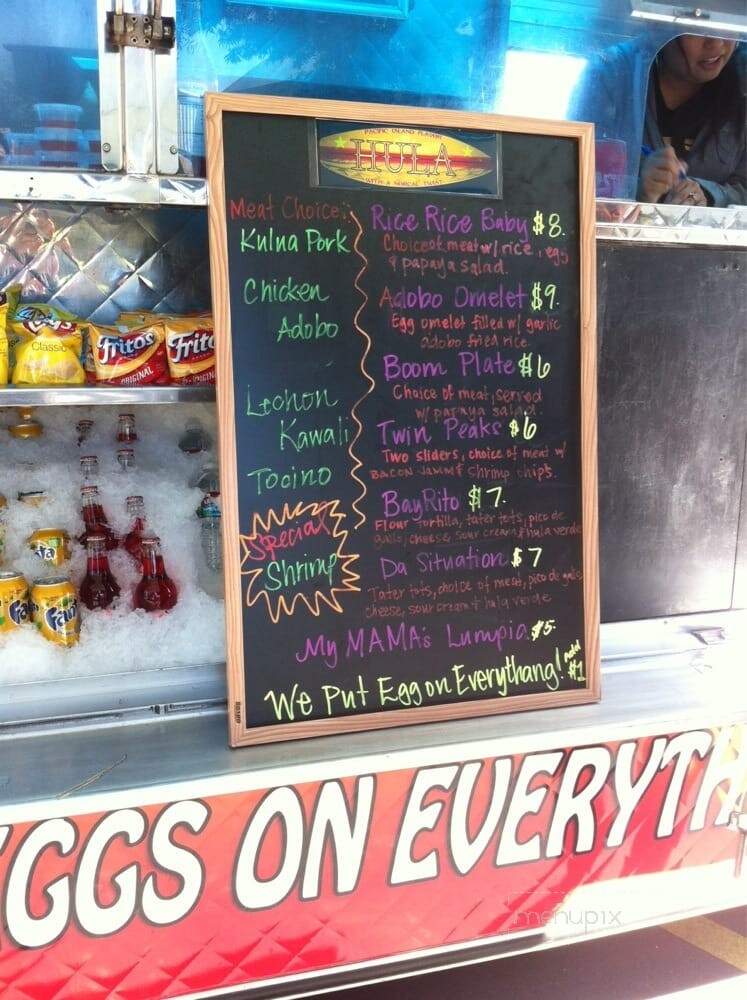 PACIFIC ISLAND FLAVOR
HULA
WITH A TWIST
Meat Choice:
Kulua Pork
Chicken
Adobo
Lechon
Kawali
Tocino
Special
Shrimp
Rice Rice Baby $8.
Choice of meat w/ rice, egg
& papaya salad.
Adobo Omelet $9.
Egg omelet filled w/ garlic
adobo fried rice.
Boom Plate $6
Choice of meat, served
w/ papaya salad.
Twin Peaks $6
Two sliders, choice of meat w/
BACON JAMM & shrimp chips.
BayRito $7.
Flour tortilla, tater tots, pico de
gallo, cheese, sour cream & hula verde
Da Situation $7
Tater tots, choice of meat, pico de gallo
cheese, sour cream & hula verde
My MAMA's Lumpia $5.
We Put Egg on Everythang!
#1
Lay's
Classic
Fritos
ORIGINAL
Frito
ORIGIN
Fanta
Fa
Fant
GGS ON EVERYTH
menupix